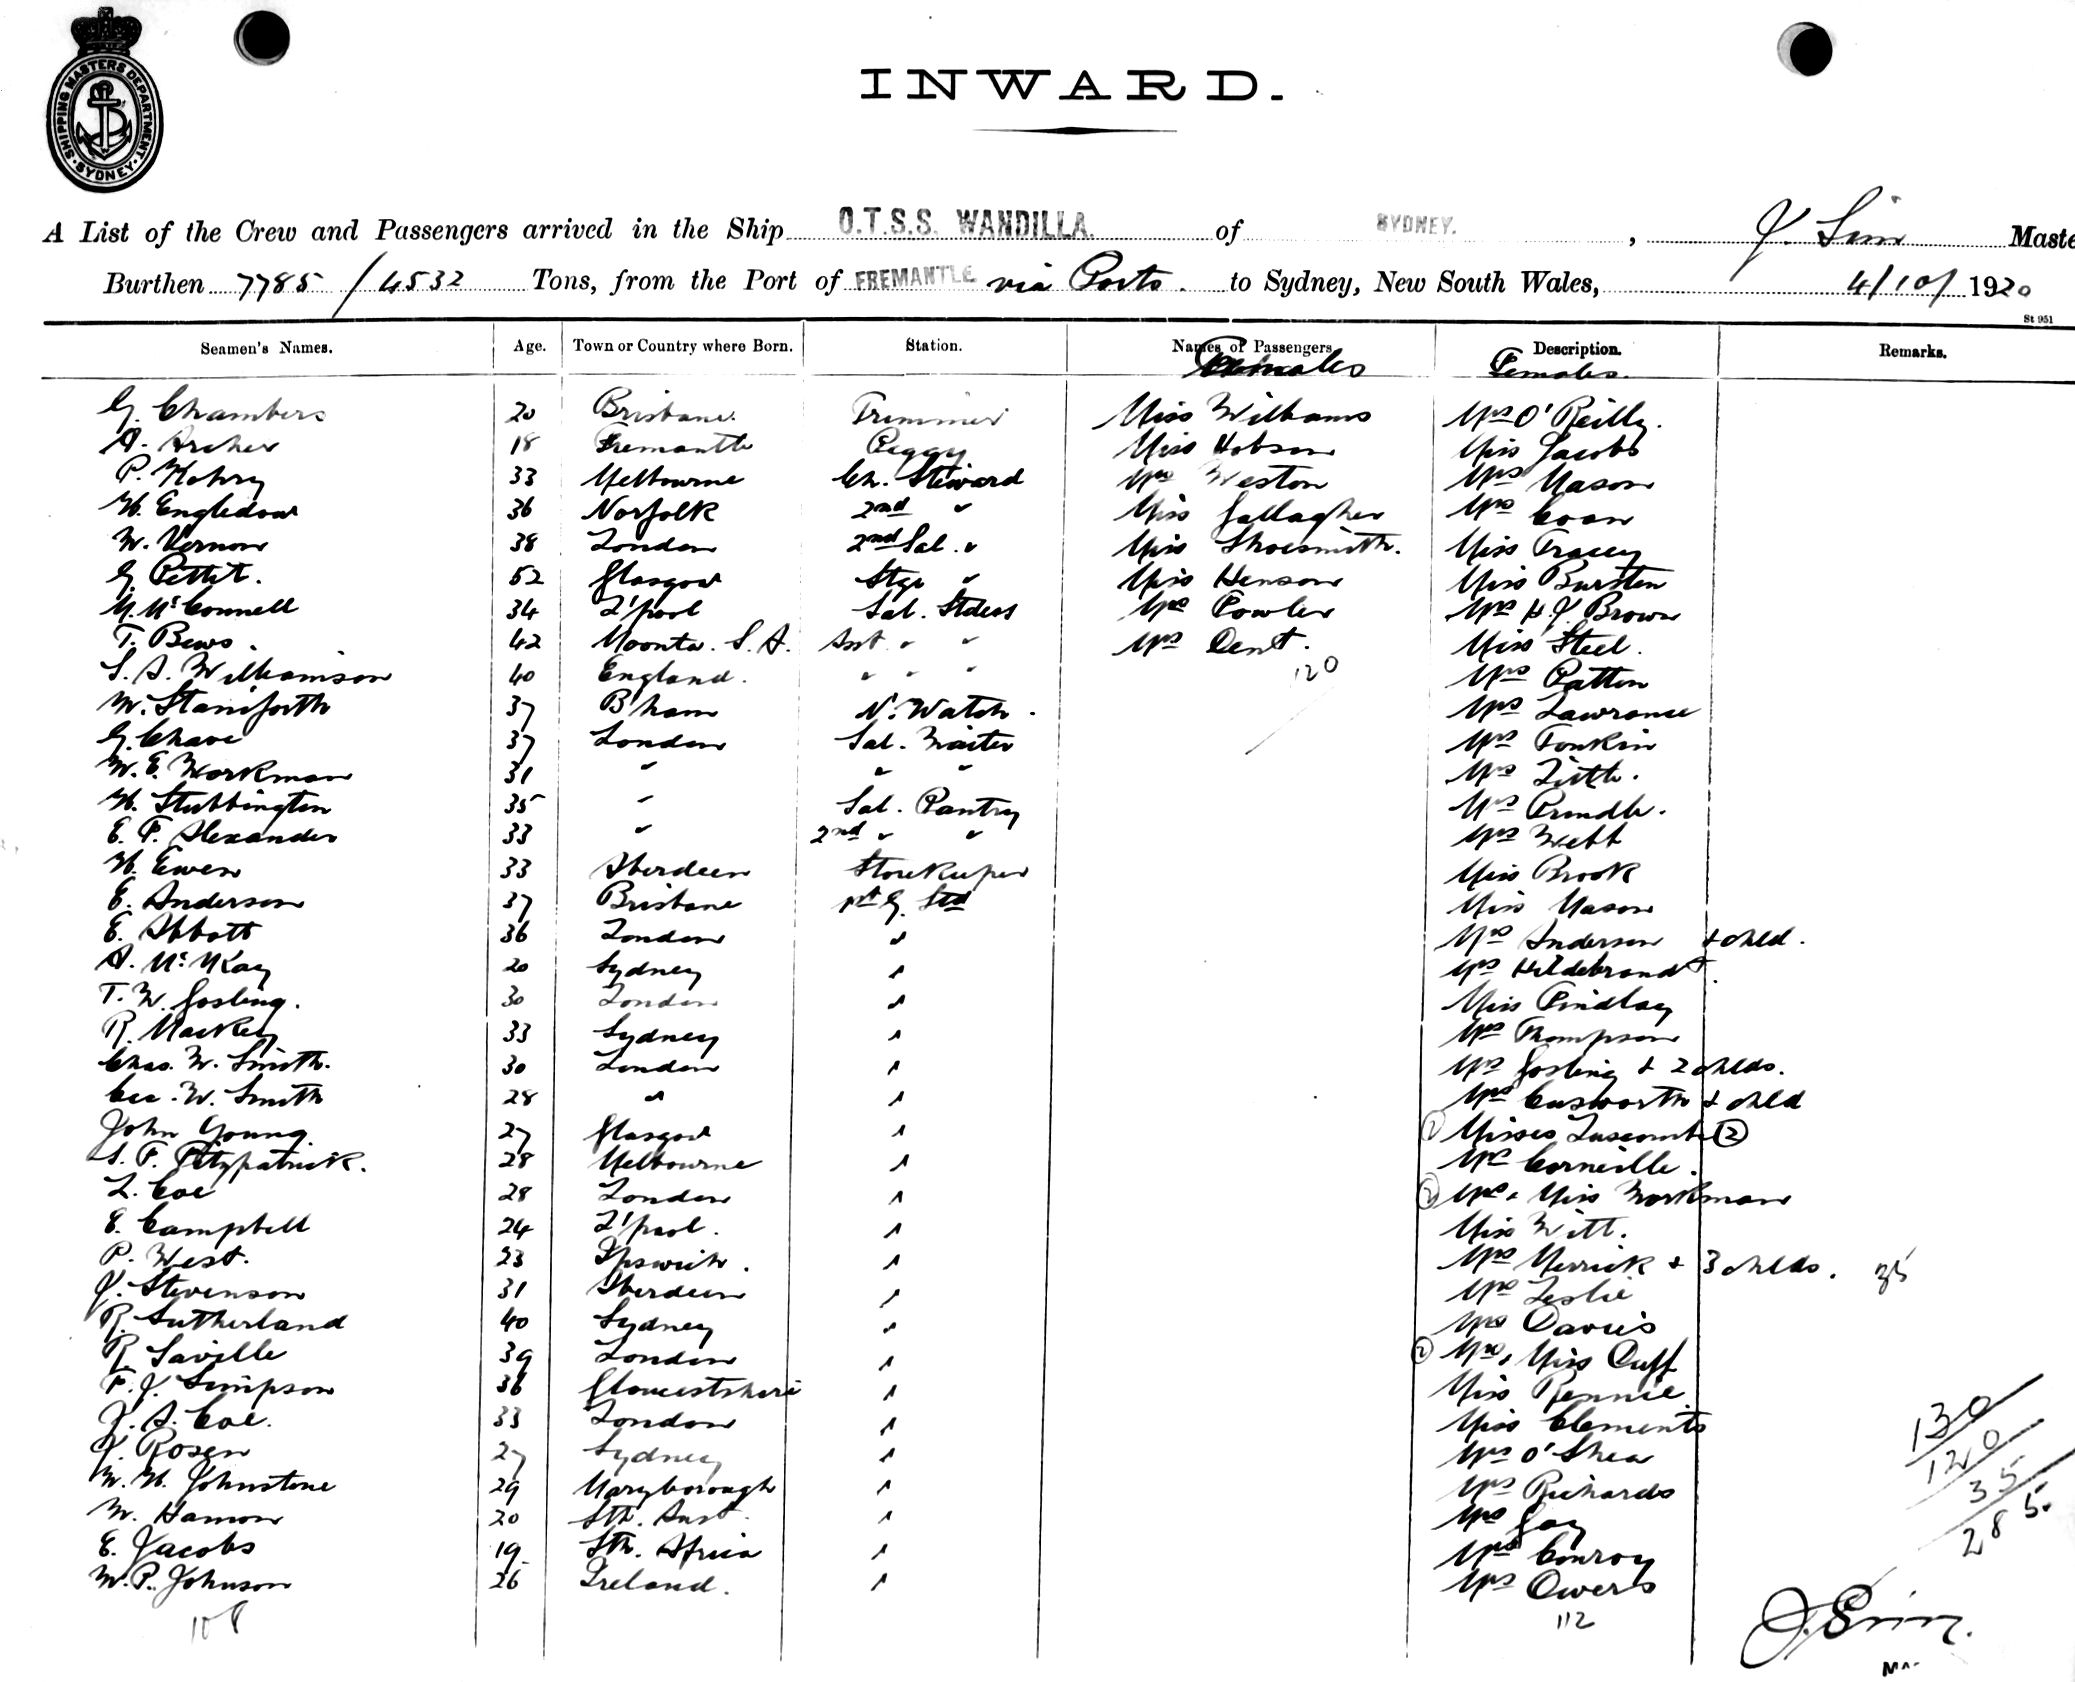 SHIPPING MASTERS DEPARTMENT. SYDNEY
INWARD.
A List of the Crew and Passengers arrived in the Ship O.T.S.S. WANDILLA. of SYDNEY. , J. Sim Maste
Burthen 7785/4532 Tons, from the Port of FREMANTLE via Ports. to Sydney, New South Wales, 4/10/1920
St 951
Seamen's Names. Age. Town or Country where Born. Station. Names of Passengers Description. Remarks.
Females Females.
G. Chambers 20 Brisbane. Trimmer Miss Williams Mrs O'Reilly.
A. Archer 18 Fremantle Peggy Miss Hobson Miss Jacobs
P. 33 Melbourne Ch. Steward Mrs Weston Mrs Mason
H. Engledow 36 Norfolk 2nd " Miss Gallagher Mrs Coan
W. Vernon 38 London 2nd Sal. " Miss Shoesmith. Miss Tracey
G. Pettit. 52 Glasgow Stge " Miss Henson Miss Bursten
M. McConnell 34 L'pool Sal. Stdess Mrs Fowler Mrs H. J. Brown
T. Bews. 42 Moonta. S.A. Asst " " Mrs Dent. Miss Steel.
S. A. Williamson 40 England. " " " 120 Mrs Patten
W. Staniforth 37 B'ham N. Watch. Mrs Lawrance
G. Chave 37 London Sal. Waiter Mrs Tonkin
W. E. Workman 31 " " " Mrs Little.
H. Stubbington 35 " Sal. Pantry Mrs Prindle.
E. F. Alexander 33 " 2nd " " Mrs Webb
H. Ewen 33 Aberdeen Storekeeper Miss Brook
E. Anderson 37 Brisbane 1st G. Std Miss Mason
E. Abbott 36 London " Mrs Anderson + child.
A. McKay 20 Sydney " Mrs Hildebrandt
T. W. Gosling. 30 London " Miss Findlay
R. Mackey 33 Sydney " Mrs Thompson
Chas. W. Smith. 30 London " Mrs Gosling + 2 childs.
Cec. W. Smith 28 " " Mrs Cusworth + child
John Young. 27 Glasgow " Misses Luscombe (2)
S. F. Fitzpatrick. 28 Melbourne " Mrs Corneille.
L. Coe 28 London " (2) Mrs + Miss Workman
E. Campbell 24 L'pool. " Miss Witt.
P. West. 23 Ipswich. " Mrs Merrick + 3 childs. 35
J. Stevenson 31 Aberdeen " Mrs Leslie
R. Sutherland 40 Sydney " Mrs Davies
R. Saville 39 London " (2) Mrs + Miss Duff
F. J. Simpson 36 Gloucestshire " Miss Rennie
J. A. Coe. 33 London " Miss Clements
J. Rosen 27 Sydney " Mrs O'Shea
W. H. Johnstone 29 Maryborough " Mrs Richards
W. Hamon 20 Sth. Aust. " Mrs Gay
E. Jacobs 19 Sth. Africa " Mrs Conroy
W. P. Johnson 26 Ireland. " Mrs Owers
108 112
130
120
35
285.
J. Sim.